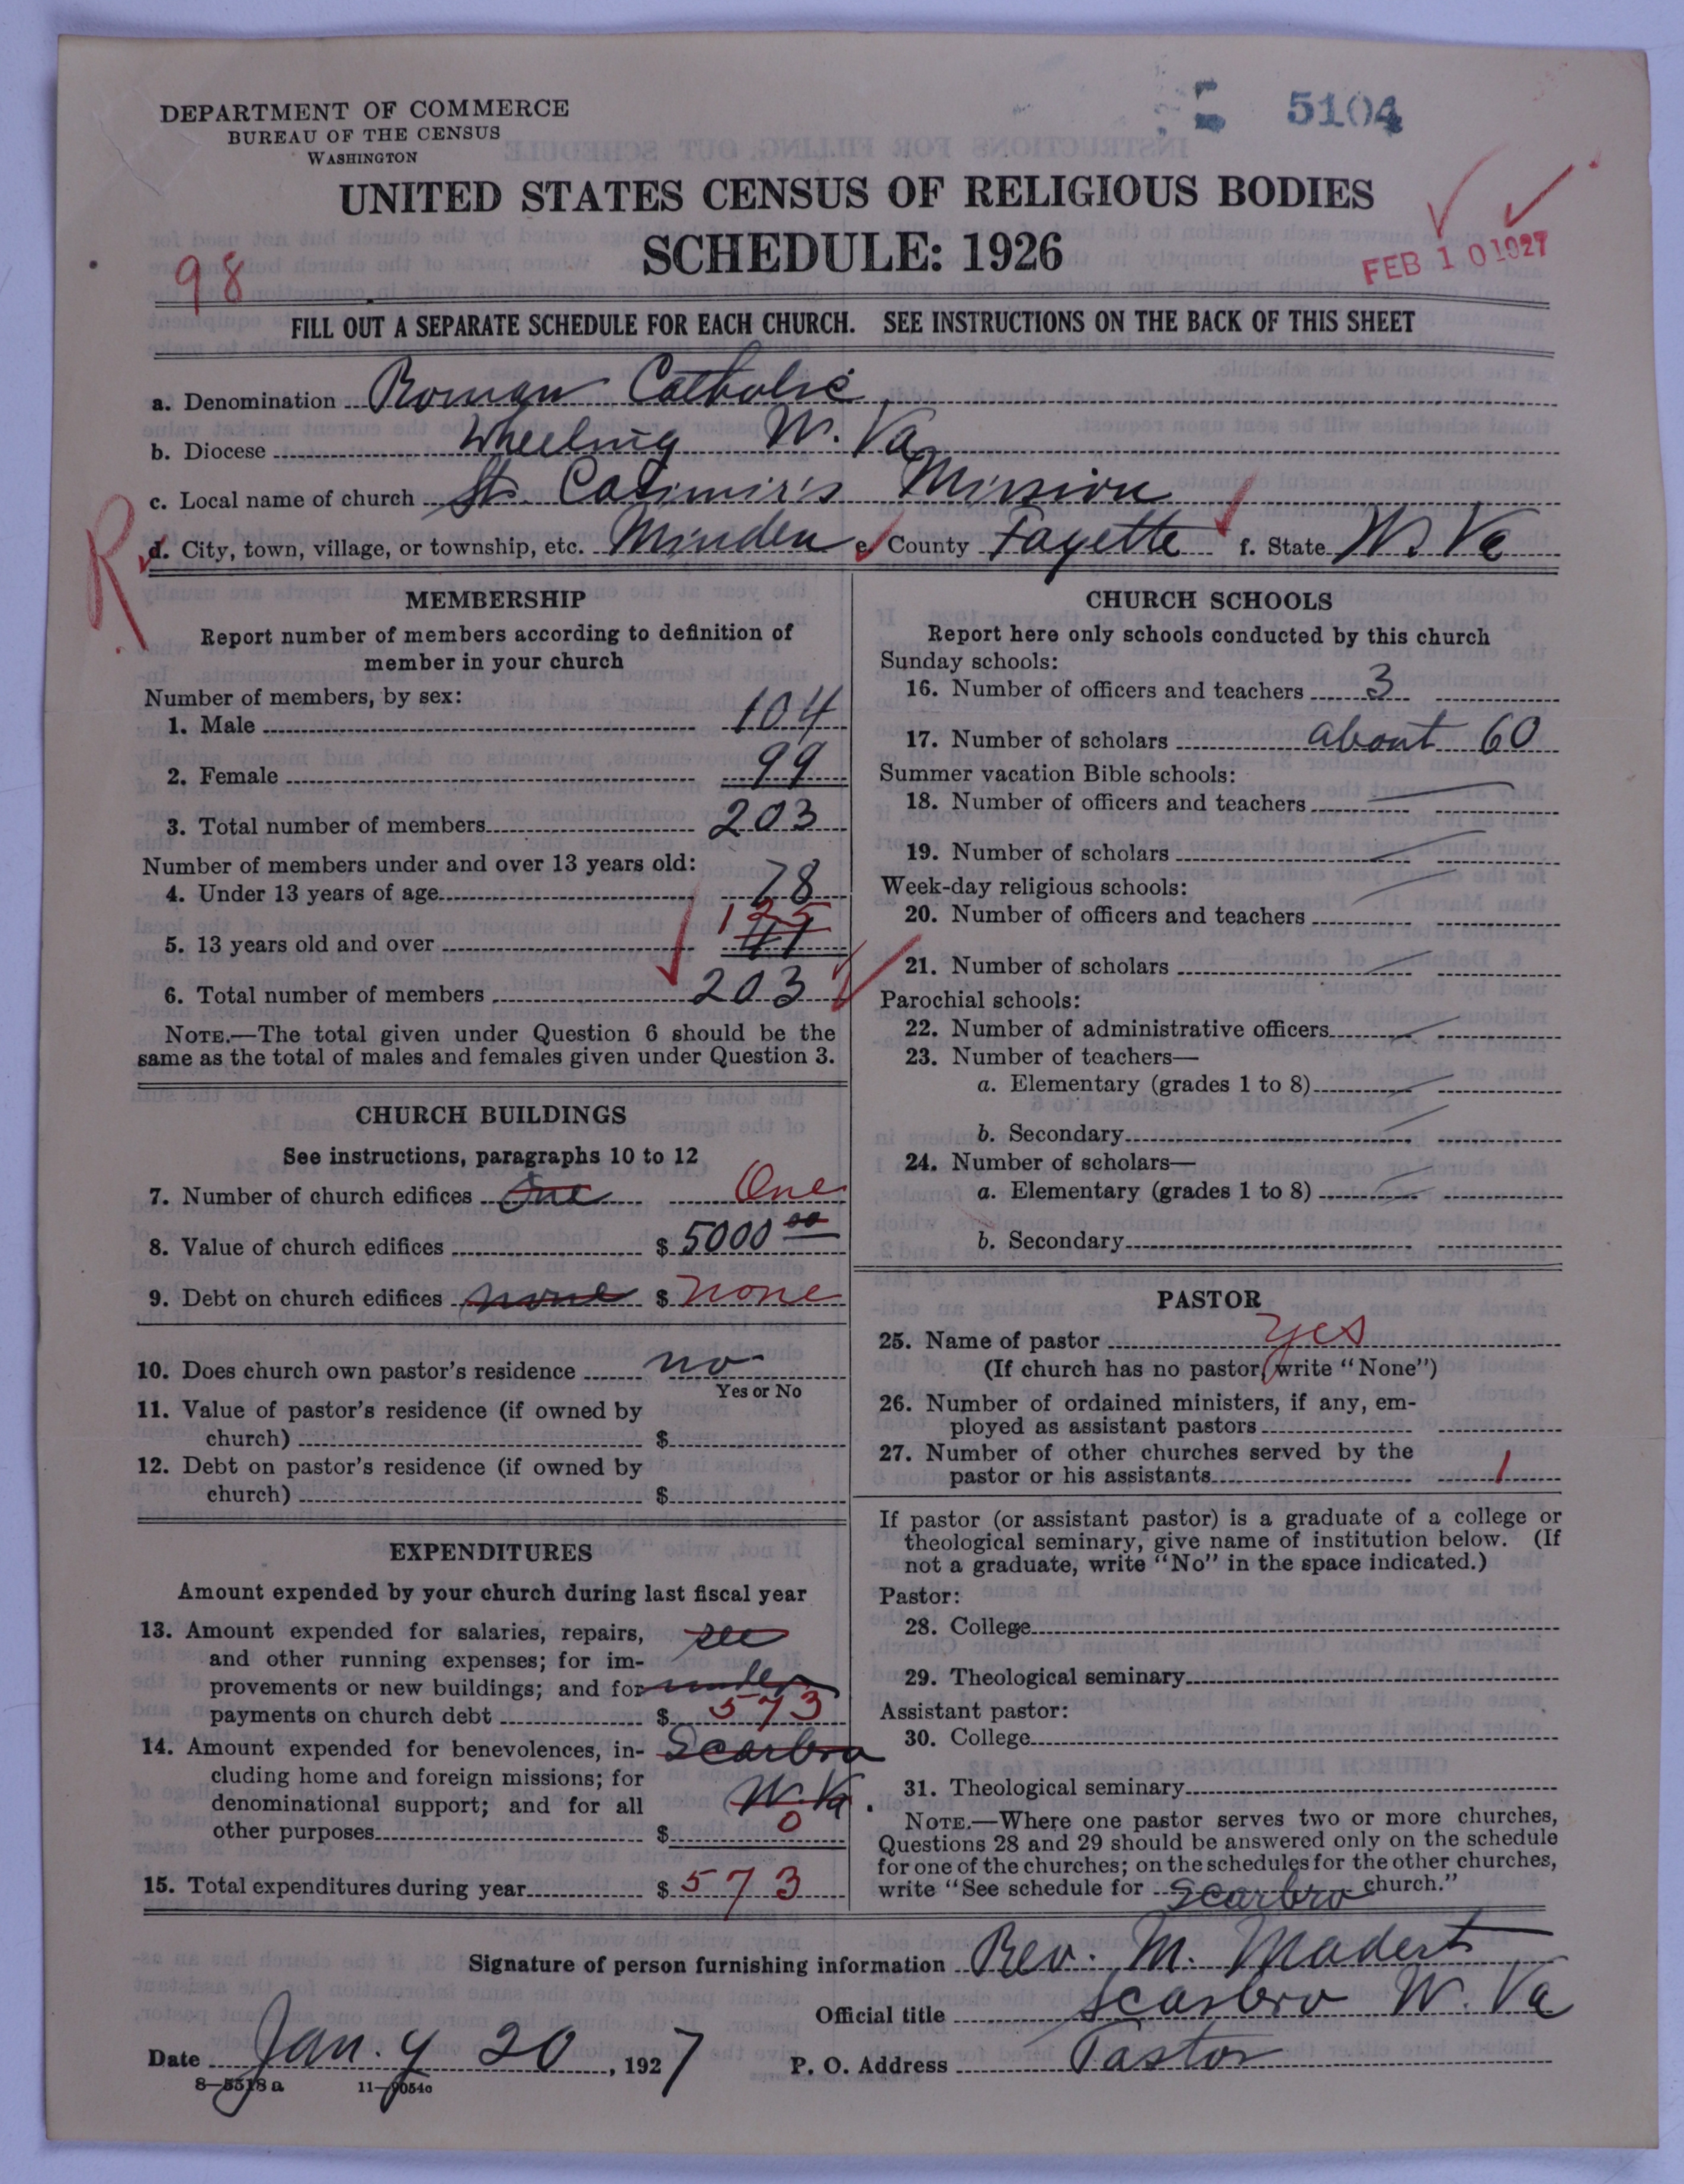 DEPARTMENT OF COMMERCE
BUREAU OF THE CENSUS
WASHINGTON
5104
UNITED STATES CENSUS OF RELIGIOUS BODIES
SCHEDULE: 1926
98
FEB 10 1927
FILL OUT A SEPARATE SCHEDULE FOR EACH CHURCH. SEE INSTRUCTIONS ON THE BACK OF THIS SHEET
a. Denomination Roman Catholic
b. Diocese Wheeling W. Va
c. Local name of church St. Casimir's Mission
R
d. City, town, village, or township, etc. Minden e. County Fayette f. State W. Va
MEMBERSHIP
Report number of members according to definition of
member in your church
Number of members, by sex:
1. Male 104
2. Female 99
3. Total number of members 203
Number of members under and over 13 years old:
4. Under 13 years of age 78
125
5. 13 years old and over
6. Total number of members 203
NOTE.—The total given under Question 6 should be the
same as the total of males and females given under Question 3.
CHURCH BUILDINGS
See instructions, paragraphs 10 to 12
7. Number of church edifices One One
8. Value of church edifices $ 5000 00
9. Debt on church edifices none $ none
10. Does church own pastor's residence no
Yes or No
11. Value of pastor's residence (if owned by
church) $
12. Debt on pastor's residence (if owned by
church) $
EXPENDITURES
Amount expended by your church during last fiscal year
13. Amount expended for salaries, repairs, see
and other running expenses; for im-
provements or new buildings; and for under
payments on church debt $ 573
14. Amount expended for benevolences, in- Scarbro
cluding home and foreign missions; for
denominational support; and for all W. Va.
other purposes $ 0
15. Total expenditures during year $ 573
CHURCH SCHOOLS
Report here only schools conducted by this church
Sunday schools:
16. Number of officers and teachers 3
17. Number of scholars about 60
Summer vacation Bible schools:
18. Number of officers and teachers
19. Number of scholars
Week-day religious schools:
20. Number of officers and teachers
21. Number of scholars
Parochial schools:
22. Number of administrative officers
23. Number of teachers—
a. Elementary (grades 1 to 8)
b. Secondary
24. Number of scholars—
a. Elementary (grades 1 to 8)
b. Secondary
PASTOR
25. Name of pastor yes
(If church has no pastor, write "None")
26. Number of ordained ministers, if any, em-
ployed as assistant pastors
27. Number of other churches served by the
pastor or his assistants 1
If pastor (or assistant pastor) is a graduate of a college or
theological seminary, give name of institution below. (If
not a graduate, write "No" in the space indicated.)
Pastor:
28. College
29. Theological seminary
Assistant pastor:
30. College
31. Theological seminary
NOTE.—Where one pastor serves two or more churches,
Questions 28 and 29 should be answered only on the schedule
for one of the churches; on the schedules for the other churches,
write "See schedule for Scarbro church."
Signature of person furnishing information Rev. M. Madert
Official title Scarbro W. Va
Date Jan. y 20, 1927 P. O. Address Pastor
8—5518 a 11—9054c